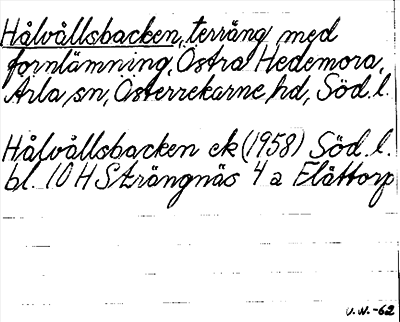 Hålvållsbacken, terräng med
fornlämning, Östra Hedemora,
Ärla sn, Österrekarne hd, Söd. l.
Hålvållsbacken ek (1958) Söd. l.
bl. 10 H Strängnäs 4 a Elättorp
U.W.-62